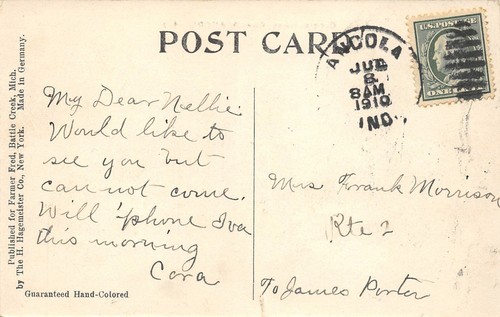 POST CARD
ANGOLA
JUL
8
8AM
1910
IND.
U.S. POSTAGE
ONE CENT
My Dear Nellie
Would like to
see you but
can not come.
Will 'phone Iva
this morning
Cora
Mrs Frank Morrison
Rte 2
To James Porter
Published for Farmer Fred, Battle Creek, Mich.
by The H. Hagemeister Co., New York. Made in Germany.
Guaranteed Hand-Colored